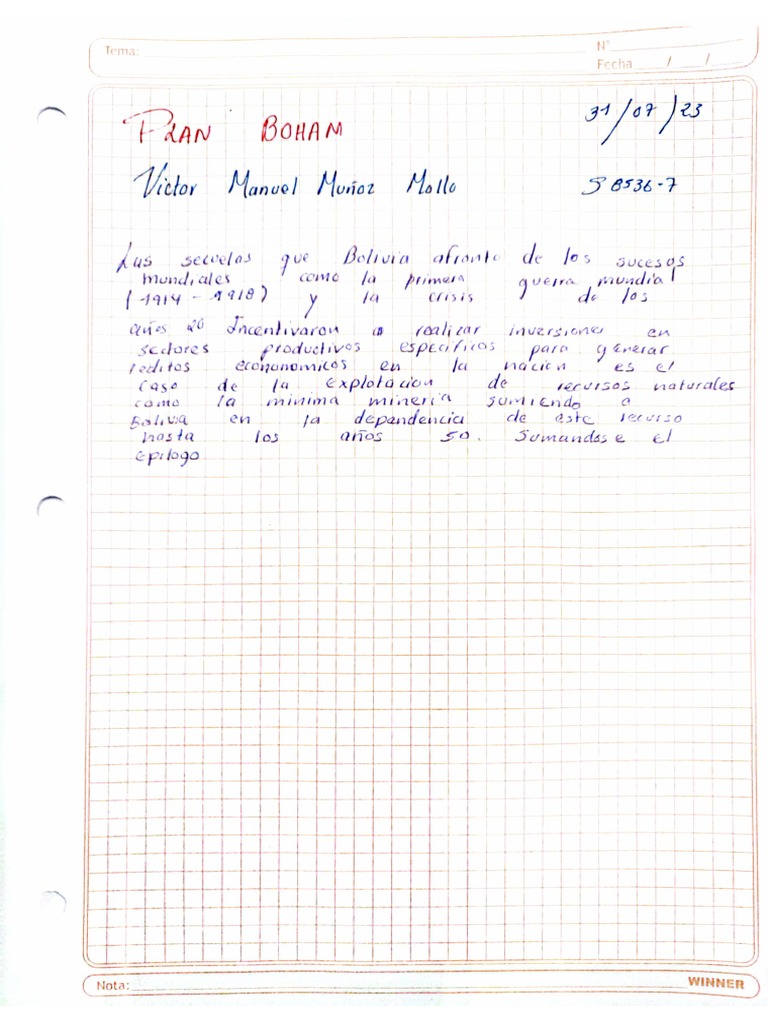 Tema:
N°
Fecha / /
PLAN BOHAM
31/07/23
Victor Manuel Muñoz Mollo
S 8536-7
Las secuelas que Bolivia afronto de los sucesos
mundiales como la primera guerra mundial
(1914-1918) y la crisis de los
años 20 Incentivaron a realizar inversiones en
sectores productivos especificos para generar
reditos econonomicos en la nacion es el
caso de la explotacion de recursos naturales
como la minima mineria sumiendo a
Bolivia en la dependencia de este recurso
hasta los años 50. Sumandose el
epilogo
Nota:
WINNER